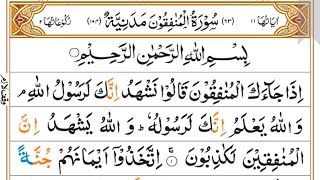 اٰيَاتُهَا ١١ (٦٣) سُوْرَةُ الْمُنٰفِقُوْنَ مَدَنِيَّةٌ (١٠٤) رُكُوْعَاتُهَا ٢
بِسْمِ اللّٰهِ الرَّحْمٰنِ الرَّحِيْمِ
اِذَا جَآءَكَ الْمُنٰفِقُوْنَ قَالُوْا نَشْهَدُ اِنَّكَ لَرَسُوْلُ اللّٰهِ ۘ
وَ اللّٰهُ يَعْلَمُ اِنَّكَ لَرَسُوْلُهٗ ؕ وَ اللّٰهُ يَشْهَدُ اِنَّ
الْمُنٰفِقِيْنَ لَكٰذِبُوْنَ ۚ ۝۱ اِتَّخَذُوْۤا اَيْمَانَهُمْ جُنَّةً
وقف لازم